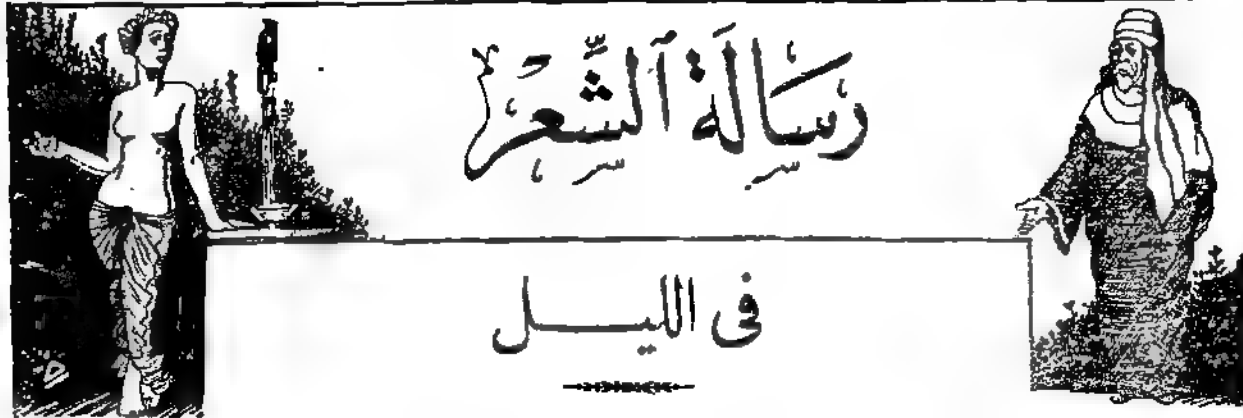 رِسَالَةُ ٱلشِّعْرِ
فى الليل